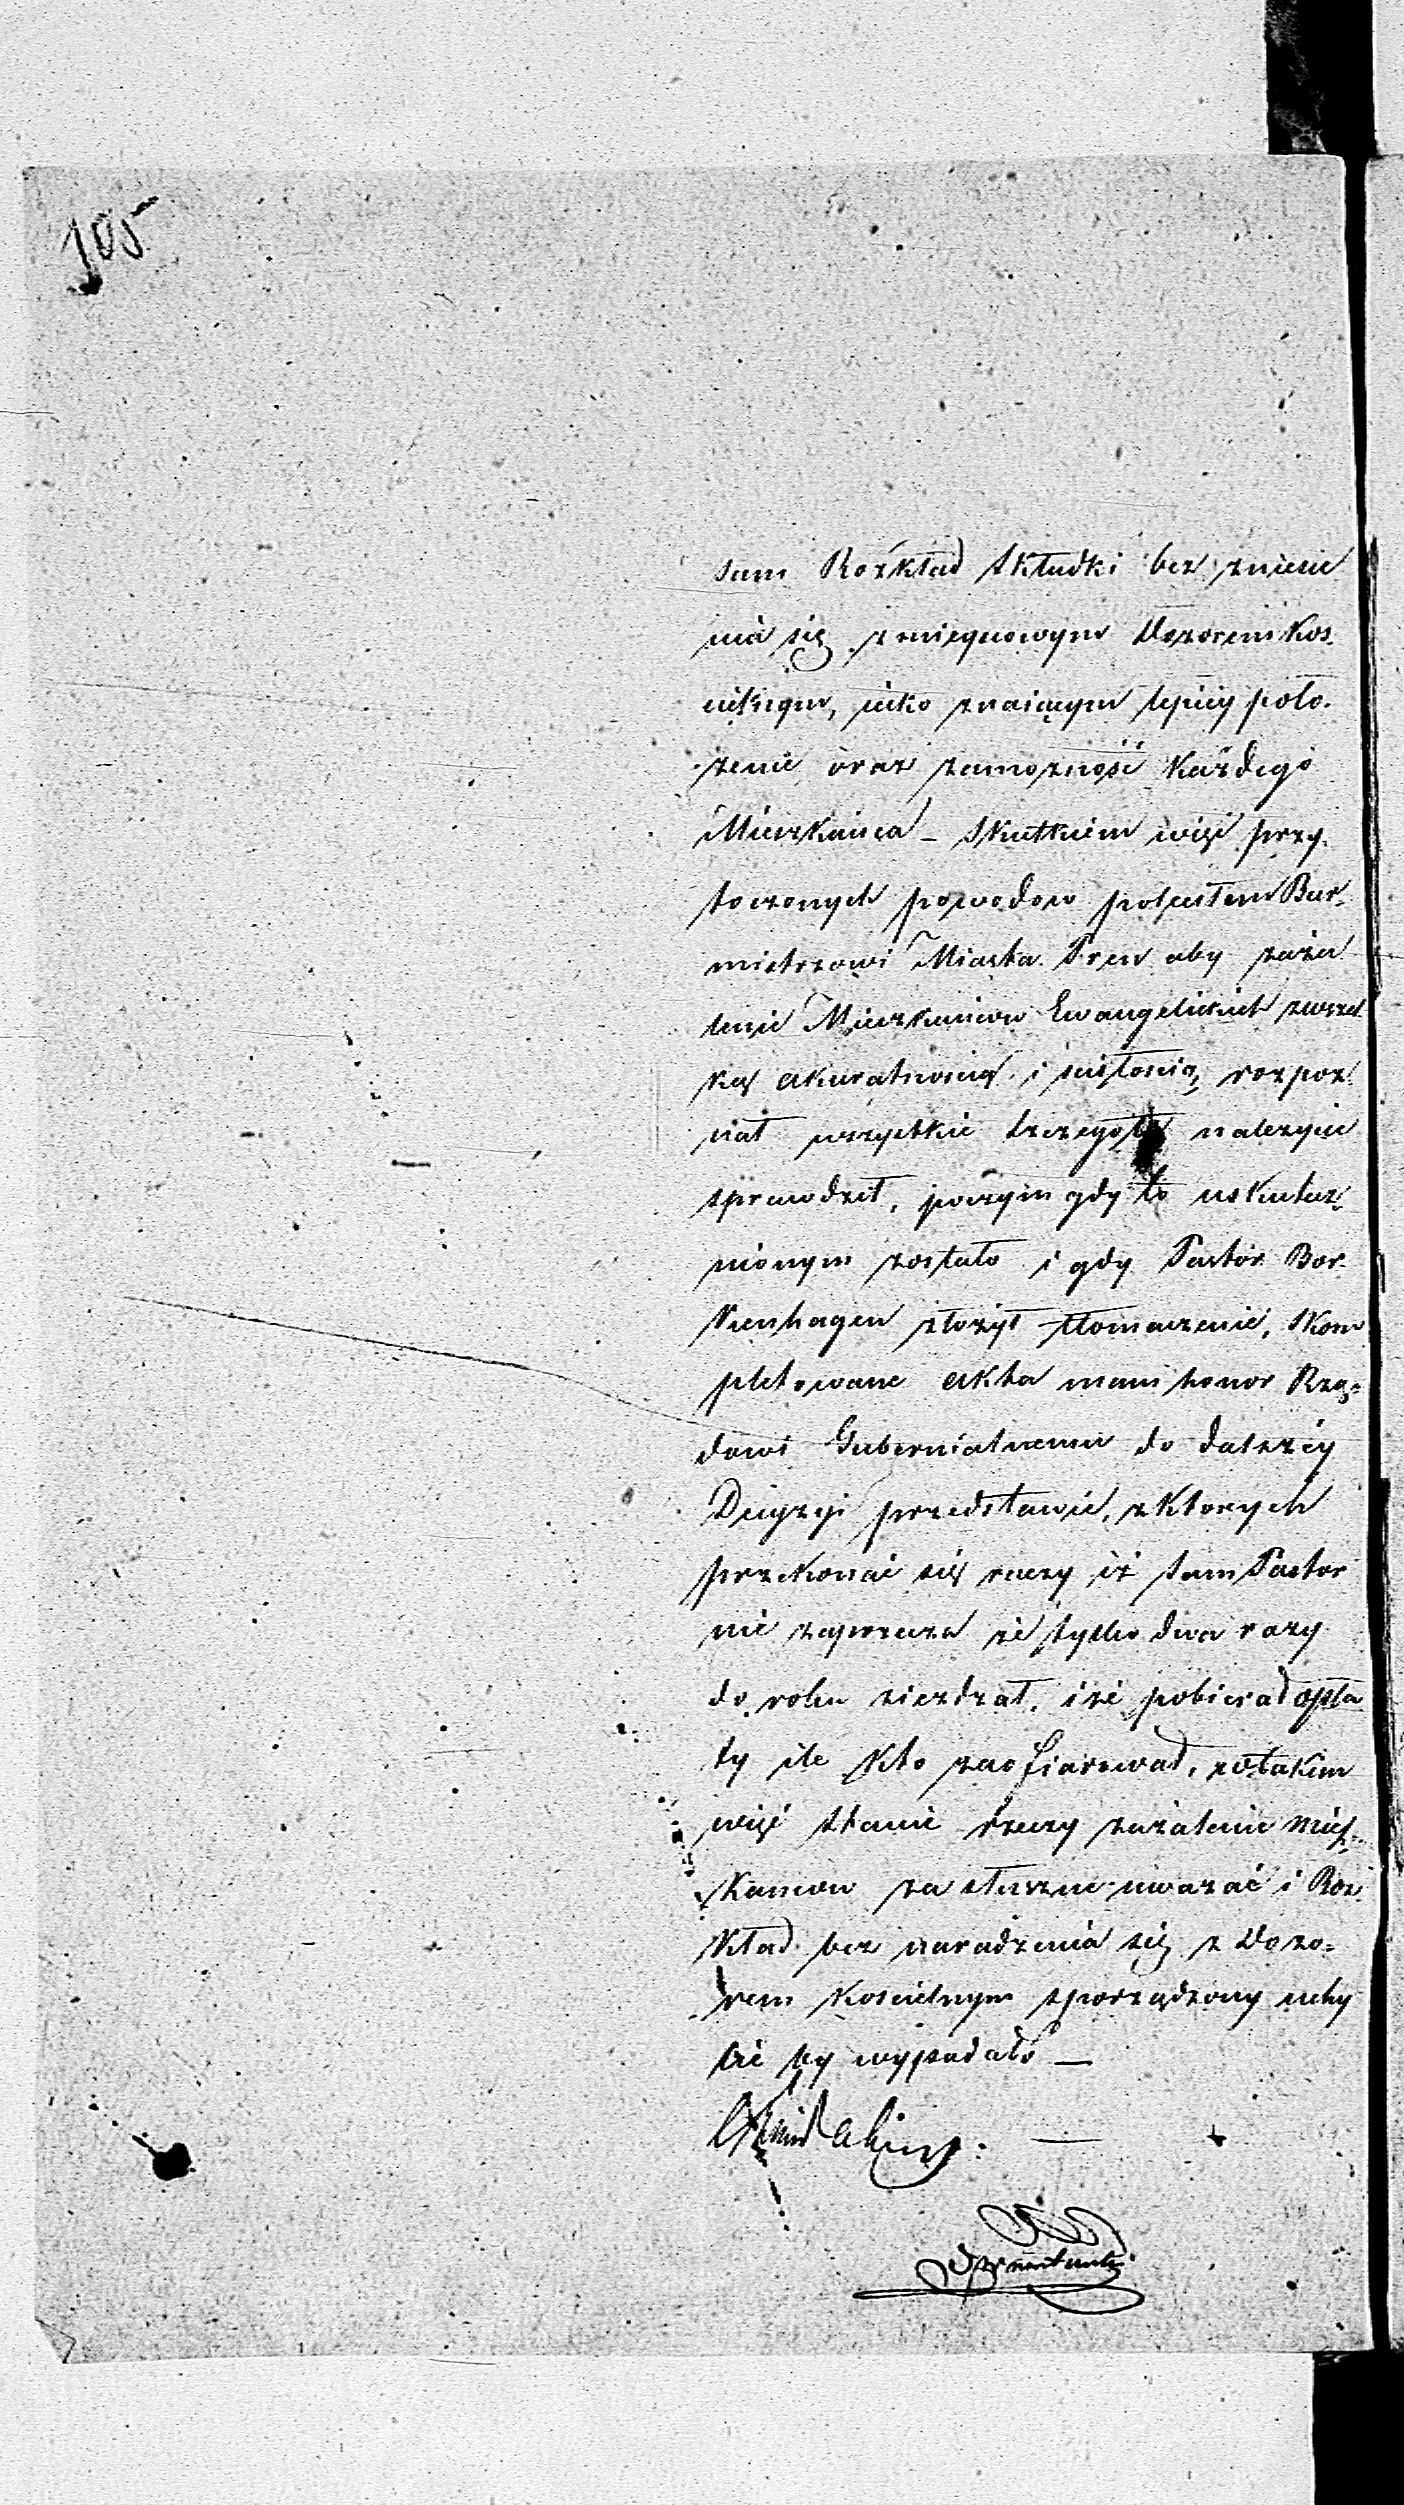 105
sam Rozkład składki bez zniesie
nia się z miejscowym Dozorem Koś.
cielnym, jako znaiącym lepiéy poło.
żenie oraz zamożność każdego
Mieszkańca – Skutkiem więc przy.
toczonych powodow poleciłem Bur.
mistrzowi Miasta Pren aby zaża
lenie Mieszkancow Ewangelickich z wszel
ką akuratnością i ścisłością, rozpoz
nał wszystkie szczegoły nalezycie
sprawdził, poczym gdy to uskutecz
nionym zostało i gdy Pastor Bor.
kenhagen złożył tłomaczenie, skom
pletowane akta mam honor Rzą=
dowi Gubernialnemu do dalszéy
Decyzyi przedstawić, z ktorych
przekonać się raczy iż sam Pastor
nie zaprzecza że tylko dwa razy
do roku ziezdzał, i że pobierał opła
ty ile kto zaofiarował, w takim
więc stanie rzeczy zażalenie Miesz.
kancow za słuszne uważać i Roz
kład bez naradzenia się z Dozo=
rem Kościelnym sporządzony uchy
lić by wypadało —